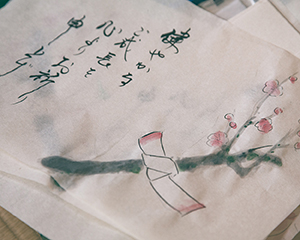 健やかな
ご成長を
心よりお祈り
申し上げます